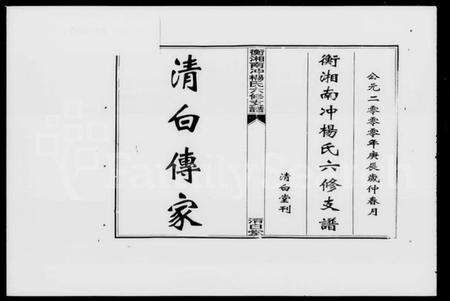 公元二零零零年庚辰歲仲春月
衡湘南冲楊氏六修支譜
清白堂刊
衡湘南冲楊氏六修支譜
清白堂
清白傳家